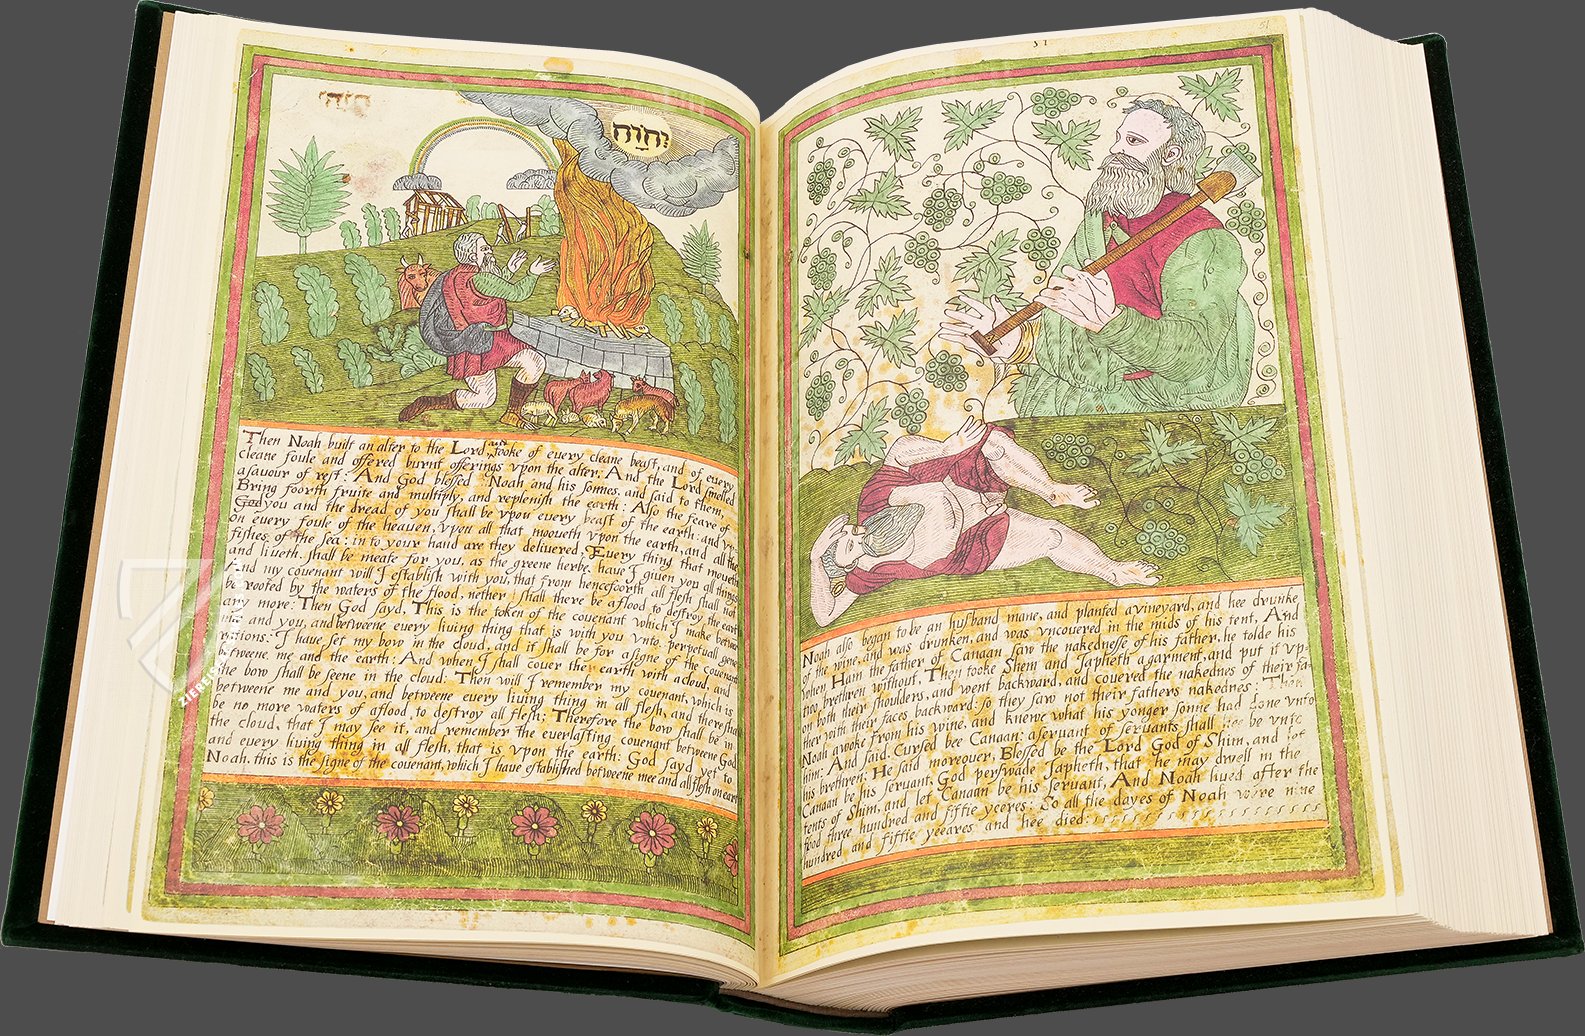 יהוה
Then Noah built an alter to the Lord, and tooke of every cleane beast, and of every
cleane foule and offered burnt offerings vpon the alter: And the Lord smelled
a savoir of rest: And God blessed Noah and his sonnes, and said to them,
Bring foorth fruite and multiply, and replenish the earth: Also the feare of
God you and the dread of you shall be vpon every beast of the earth: and vp-
on every foule of the heaven, vpon all that mooveth vpon the earth, and all the
fishes of the sea: in to your hand are they delivered, Every thing that mooveth
and liueth. shall be meate for you, as the greene herbe, have I giuen you all things
And my couenant will I establish with you, that from hencefoorth all flesh shall not
be rooted by the waters of the flood, neither shall there be a flood to destroy the earth
any more: Then God sayd, This is the token of the couenant which I make betwen
me and you, and betweene every liuing thing that is with you vnto perpetuall gene
rations: I have set my bow in the cloud, and it shall be for a signe of the couenant
betweene me and the earth: And when I shall couer the earth with a cloud, and
the bow shall be seene in the cloud: Then will I remember my couenant, which is
betweene me and you, and betweene every liuing thing in all flesh, and there shall
be no more waters of a flood, to destroy all flesh: Therefore the bow shall be in
the cloud, that I may see it, and remember the everlasting couenant betweene God
and every liuing thing in all flesh, that is vpon the earth: God sayd yet to
Noah, this is the signe of the couenant, which I have established betweene mee and all flesh on earth
51
51
Noah also began to be an husband mane, and planted a vineyard, and hee drunke
of the wine, and was drunken, and was vncouered in the mids of his tent, And
when Ham the father of Canaan saw the nakednesse of his father, he tolde his
two brethren without, Then tooke Shem and Japheth a garment, and put it vp-
on both their shoulders, and went backward, and couered the nakednes of their fa-
ther with their faces backward: so they saw not their fathers nakednes: Then
Noah awoke from his wine, and knewe what his yonger sonne had done vnto
him: And said. Cursed bee Canaan: a seruant of seruants shall hee be vnto
his brethren: He said moreouer, Blessed be the Lord God of Shim, and let
Canaan be his seruant, God perswade Japheth, that he may dwell in the
tents of Shim, and let Canaan be his seruant, And Noah liued after the
flood three hundred and fiftie yeeres: So all the dayes of Noah were nine
hundred and fiftie yeeares and hee died: